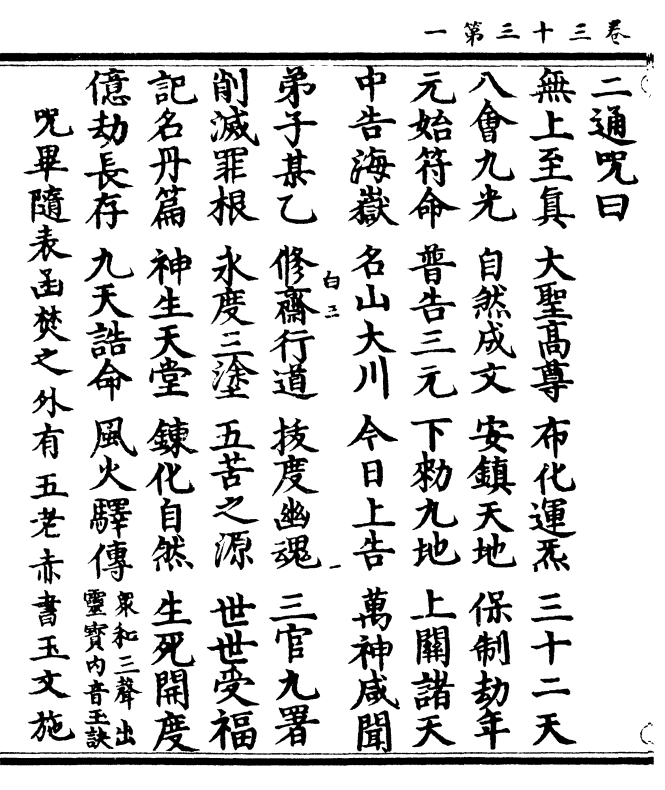 卷三十三第一
二通咒曰
無上至真　大聖高尊　布化運炁　三十二天
八會九光　自然成文　安鎮天地　保制劫年
元始符命　普告三元　下勑九地　上關諸天
中告海嶽　名山大川　今日上告　萬神咸聞
白三
弟子某乙　修齋行道　拔度幽魂　三官九署
削滅罪根　永度三塗　五苦之源　世世受福
記名丹篇　神生天堂　鍊化自然　生死開度
億劫長存　九天誥命　風火驛傳　衆和三聲出
靈寶内音玉訣
咒畢隨表函焚之外有五老赤書玉文施